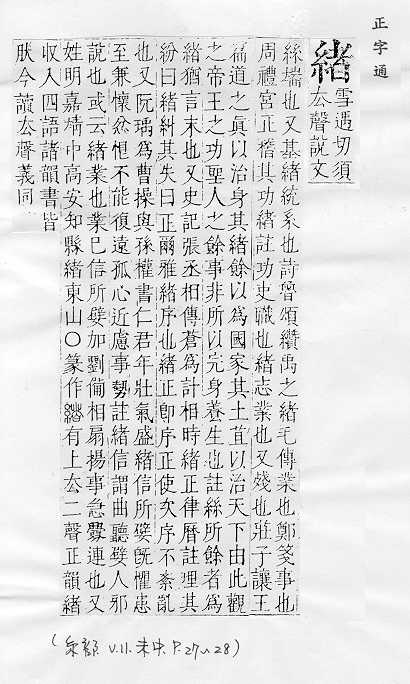 正字通
緒 雪遇切須
去聲說文
絲耑也又基緒統系也詩魯頌纘禹之緒毛傳業也鄭箋事也
周禮宮正稽其功緒註功吏職也緒志業也又殘也莊子讓王
篇道之眞以治身其緒餘以爲國家其土苴以治天下由此觀
之帝王之功聖人之餘事非所以完身養生也註絲所餘者爲
緒猶言末也又史記張丞相傳蒼爲計相時緒正律曆註理其
紛曰緒糾其失曰正爾雅緒序也緒正卽序正使次序不紊亂
也又阮瑀爲曹操與孫權書仁君年壯氣盛緒信所嬖旣懼患
至兼懷忿恨不能復遠孤心近慮事勢註緒信謂曲聽嬖人邪
說也或云緒業也業已信所嬖加劉備相扇揚事急釁連也又
姓明嘉靖中高安知縣緒東山○篆作緒有上去二聲正韻緒
收入四語諸韻書皆
肰今讀去聲義同
(彙部 V.11.未中.P.27~28)